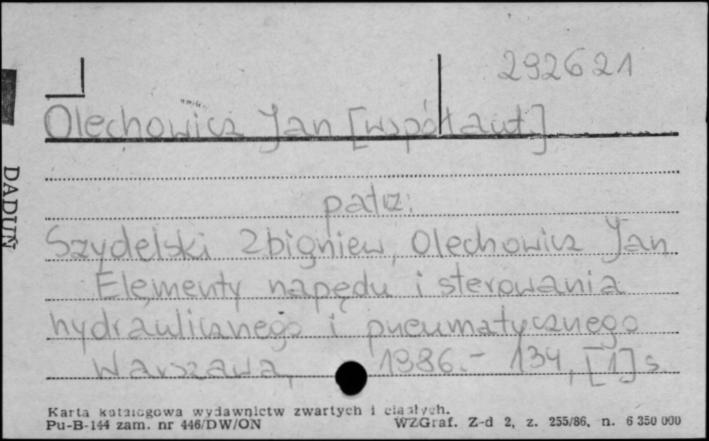 292621
Olechowicz Jan [współaut]
patrz:
Szydelski Zbigniew, Olechowicz Jan
Elementy napędu i sterowania
hydraulicznego i pneumatycznego
Warszawa, 1986.- 134, [1] s.
DADUŃ
Karta katalogowa wydawnictw zwartych i ciągłych.
Pu-B-144 zam. nr 446/DW/ON WZGraf. Z-d 2, z. 255/86, n. 6 350 000